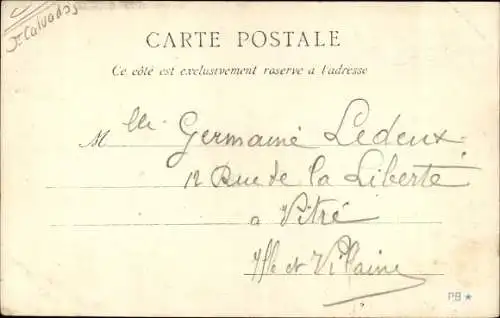 Ct Calvados
CARTE POSTALE
Ce côté est exclusivement réservé à l'adresse
Mlle Germaine Ledeux
12 Rue de la Liberté
à Vitré
Ille et Vilaine
PB ★